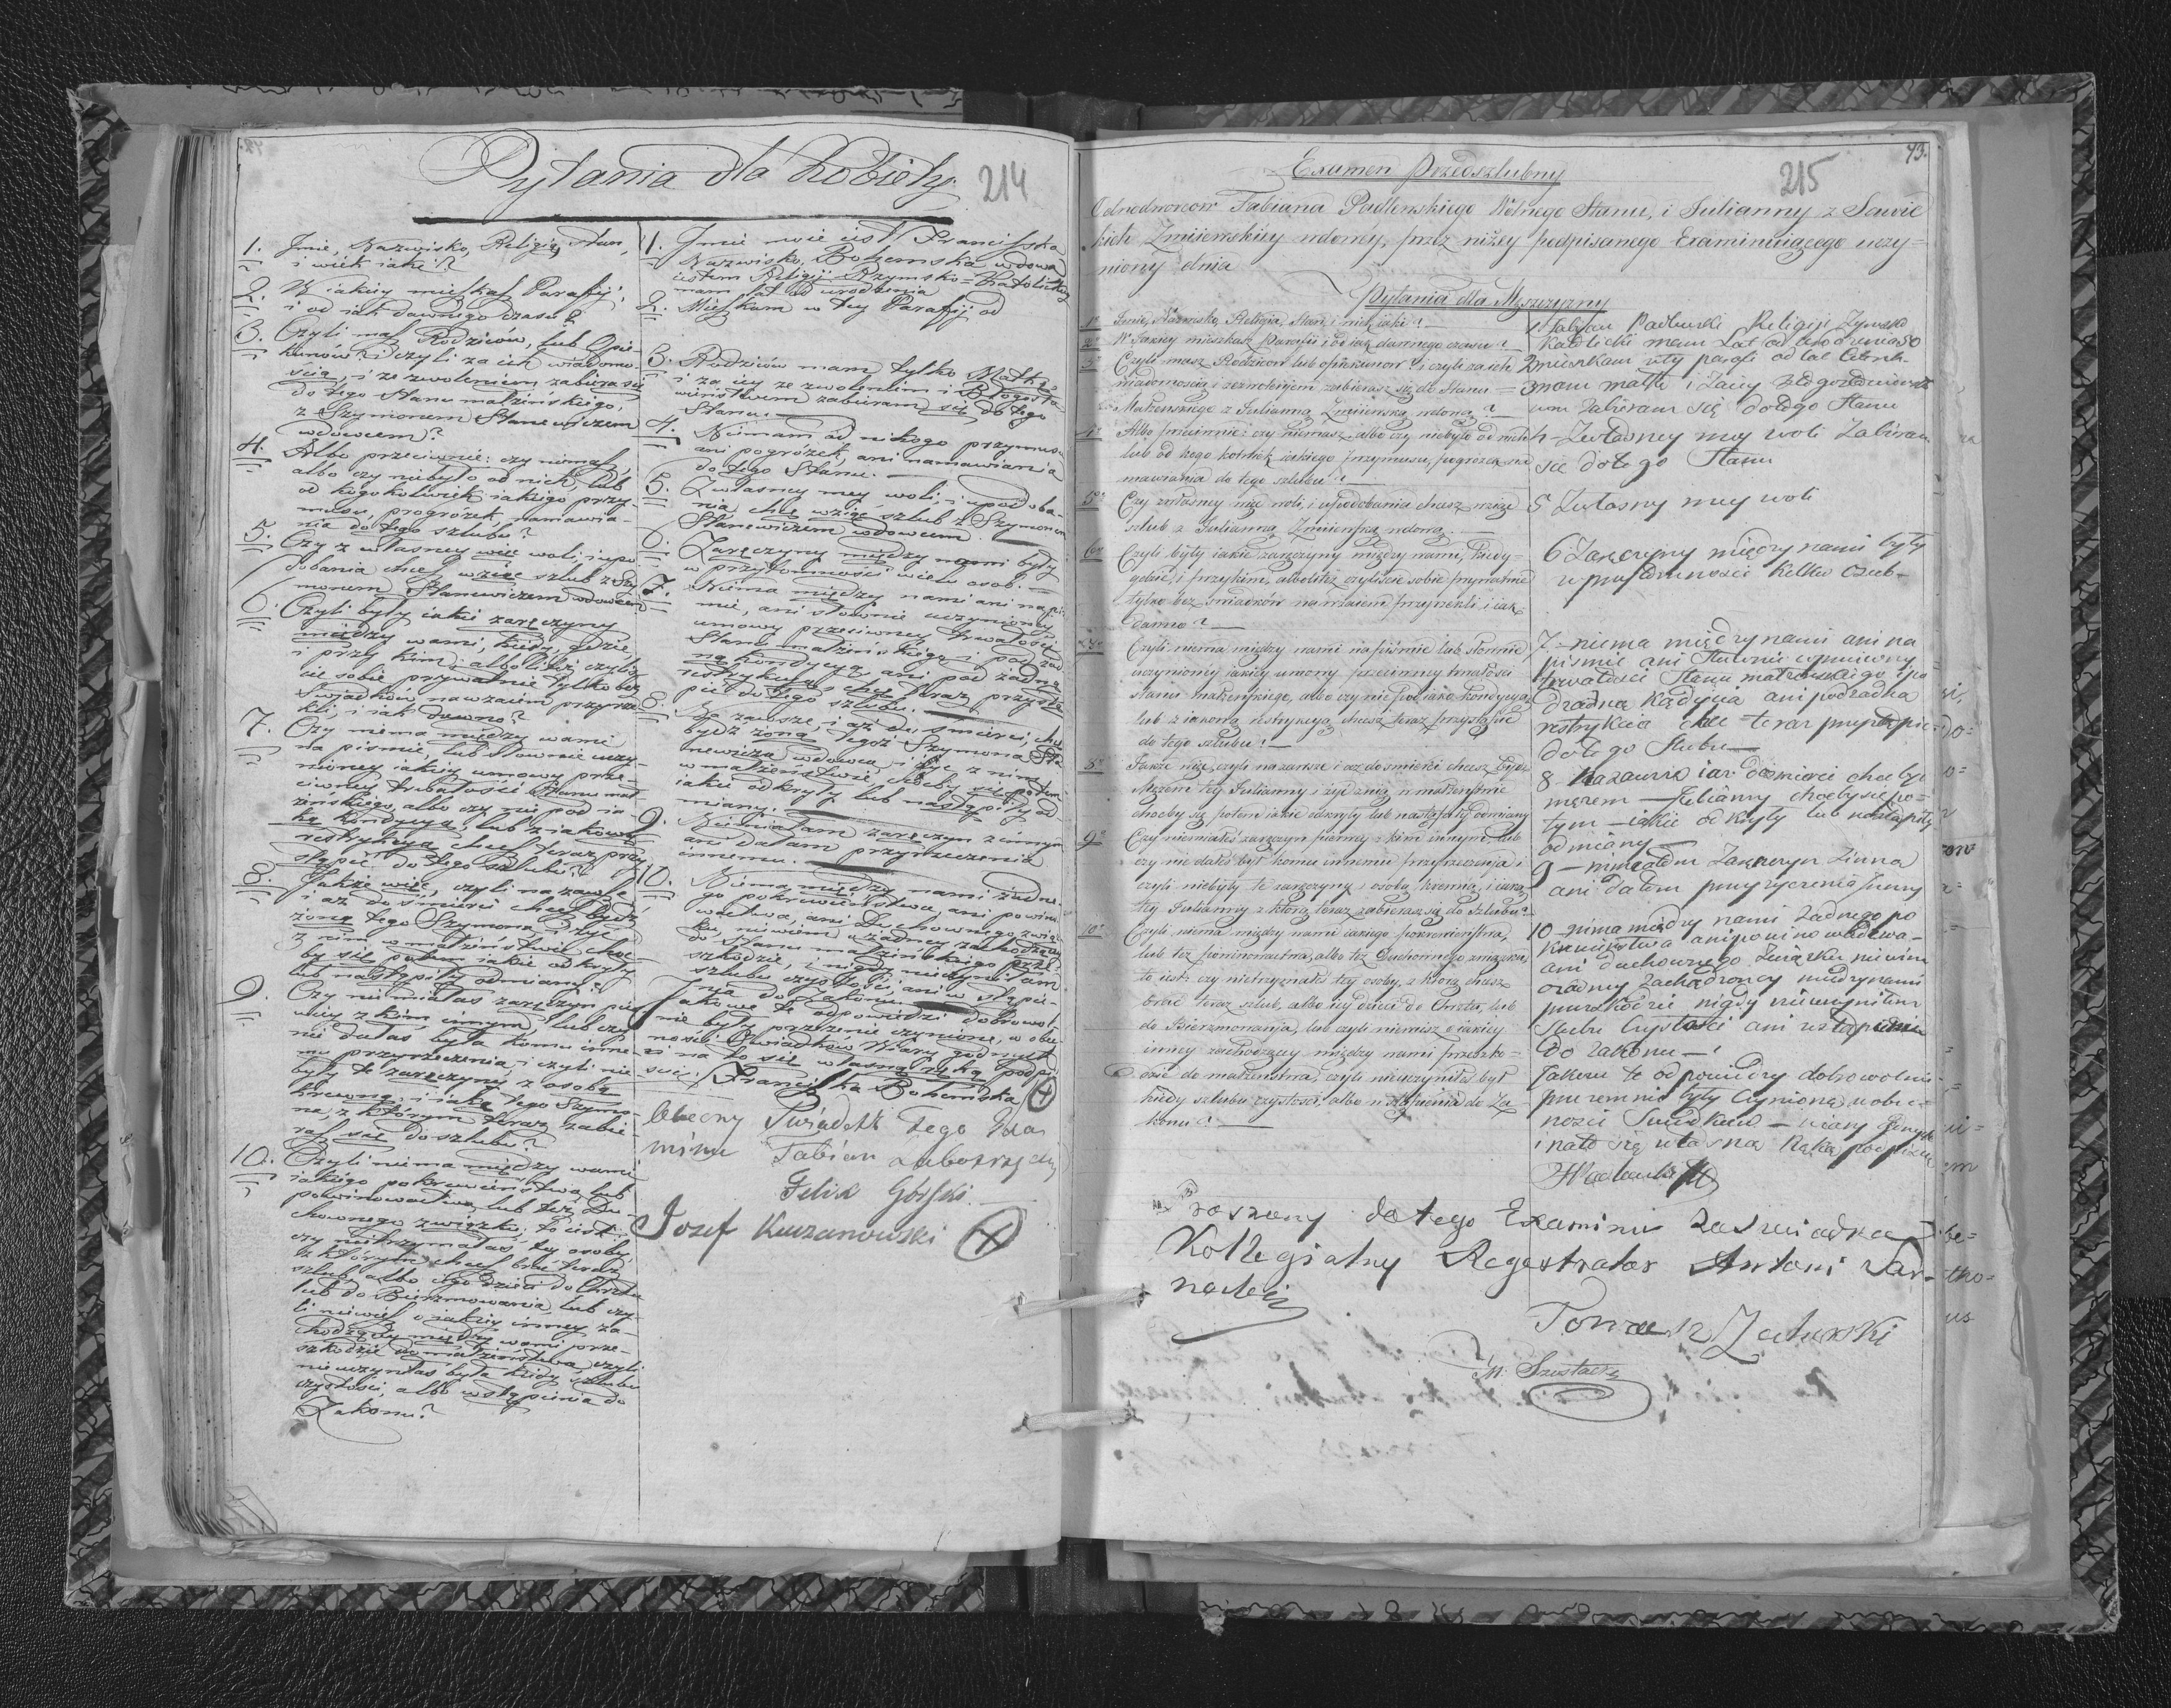 Pytania dla Kobiety.
214
1. Jmie, Nazwisko, Religia, stan,
i wiek iaki?
2. W iakiey mieszkasz Parafij,
i od iak dawnego czasu?
3. Czyli masz Rodziców, lub Opie-
kunów? i czyli za ich wiadomo-
ścią, i ze zwoleniem zabierasz się
do tego Stanu małżeńskiego,
z Szymonem Stanewiczem
wdowcem?
4. Albo przeciwnie: czy niemasz,
albo czy niebyło od nich, lub
od kogokolwiek iakiego przy-
musu, progróżek, namawia-
nia do tego szlubu?
5. Czy z własney więc woli i upo-
dobania chcesz wziąć szlub z Szy-
monem Stanewiczem wdowcem
6. Czyli były iakie zaręczyny
między wami, kiedy, gdzie,
i przy kim, albo liteż czyliś-
cie sobie prywatnie tylko bez
świadków nawzaiem przyrze-
kli, i iak dawno?
7. Czy niema między wami
na pismie, lub słownie uczy-
nioney iakiey umowy prze-
ciwney trwałości Stanu mał-
żeńskiego, albo czy nie pod ia-
ką kondycyą, lub z iakową
restrykcyą chcesz teraz przy-
stąpić do tego szlubu?
8. Jakże więc, czyli na zawsze
i aż do śmierci chcesz bydź
żoną tego Szymona, i żyć
z nim w małżeństwie choć-
by się potem iakie odkryły
lub nastąpiły odmiany?
9. Czy nie miałaś zaręczyn pier-
wiey z kim innym, lub czy
nie dałaś była komu inne-
mu przyrzeczenia, i czyli nie
były te zaręczyny z osobą
krewną, i iaką tego Szymo-
na, z którym teraz zabie-
rasz się do szlubu?
10. Czyli niema między wami
iakiego pokrewieństwa, lub
powinowactwa, lub też Du-
chownego związku, to iest:
czy nietrzymałaś tey osoby,
z którym chcesz brać teraz
szlub, albo iego dzieci do Chrztu
lub do Bierzmowania, lub czy-
li niewiesz o iakiey inney za-
chodzącey między wami prze-
szkodzie do małżeństwa, czyli
nieuczyniłaś była kiedy szlubu
czystości, albo wstąpienia do
Zakonu?
1. Jmie moie iest Franciszka
Nazwisko, Bohemska wdowa
iestem Religij Rzymsko-Katolickiey
mam lat od urodzenia
2. Mieszkam w tey Parafij od
3. Rodziców mam tylko Matkę
i za iey ze zwoleniem i Błogosła-
wieństwem zabieram się do tego
Stanu.
4. Niemam od nikogo przymusu
ani pogróżek, ani namawiania
do tego Stanu.
5. Z własney mey woli i upodoba-
nia chcę wziąć szlub z Szymonem
Stanewiczem wdowcem.
6. Zaręczyny między nami były
w przytomności wielu osob.
7. Niema między nami ani na piś-
mie, ani słownie uczynioney
umowy przeciwney trwałości
Stanu małżeńskiego, i pod żad-
ną kondycyą, ani pod żadną
restrykcyą chcę teraz przystą-
pić do tego szlubu.
8. Na zawsze, i aż do śmierci chcę
bydź żoną tegoż Szymona Sta-
newicza wdowca, i żyć z nim
w małżeństwie, choćby się potem
iakie odkryły lub nastąpiły od-
miany.
9. Niemiałam zaręczyn z innym
ani dałam przyrzeczenia
innemu.
10. Niema między nami żadne-
go pokrewieństwa, ani powino-
wactwa, ani Duchownego związ-
ku, niewiem o żadney zachodzącey
do Stanu małżeńskiego prze-
szkodzie, i nigdy nieczyniłam
szlubu czystości, ani wstąpie-
nia do Zakonu.
Jakowe te odpowiedzi dobrowol-
nie były przezemie czynione, w obec-
ności Świadków Wiary godnych
i na to się własną ręką podpi-
suię: Franciszka Bohemska (+)
Obecny Świadek Tego Exa
minu Fabian Zabokrzecki
Felix Górski
Jozef Kuczanowski (X)
73.
215
Examen Przedszlubny
Odnodworcow Fabiana Padlewskiego Wolnego Stanu, i Julianny z Sawic
kich Zmijewskiey wdowy, przez niżey podpisanego Examinuiącego uczy=
niony dnia
Pytania dla Mężczyzny
1e Jmie, Nazwisko, Religia, Stan, i wiek iaki?
2e W Jakiey mieszkasz Parafii i od iak dawnego czasu?
3e Czyli masz Rodzicow lub opiekunow? i czyli za ich
wiadomością i zezwoleniem zabierasz się do Stanu
Małżenskiego z Julianną Zmijewską wdową?
4e Albo przeciwnie: czy niemasz albo czy niebyło od nich
lub od kogo kolwiek iakiego przymusu, pogrożek na
mawiania do tego szlubu?
5e Czy zwłasney więc woli, i upodobania chcesz wziąć
szlub z Julianną Zmijewską wdową.
6e Czyli były iakie zaręczyny między wami, kiedy=
gdzie, i przykim, albo liteż czyliście sobie prywatnie
tylko bez swiadkow nawzaiem przyrzekli i iak
dawno?
7e Czyli niema między wami na piśmie lub słownie
uczynioney iakiey umowy przeciwney trwałości
stanu małżenskiego, albo czy nie pod iaką kondycyą
lub z iakową restrykcyą chcesz teraz przystąpić
do tego szlubu?
8e Jakże więc, czyli na zawsze i aż do śmierci chcesz bydź
Mężem tey Julianny i żyć z nią w małżeństwie
choćby się potem iakie odkryły lub nastąpiły odmiany
9e Czy niemiałeś zaręczyn pierwey z kim innym, lub
czy nie dałeś był komu innemu przyrzeczenia i
czyli niebyły te zaręczyny z osobą krewną i iaką
tey Julianny z którą teraz zabierasz się do Szlubu?
10e Czyli niema między wami iakiego pokrewieństwa,
lub też powinowactwa, albo też Duchownego związku
to iest: czy nietrzymałeś tey osoby, z którą chcesz
brać teraz szlub, albo iey dzieci do Chrztu, lub
do Bierzmowania, lub czyli niewiesz o iakiey
inney zachodzącey między wami przeszko=
dzie do małżenstwa, czyli nieuczyniłeś był
kiedy szlubu czystości, albo wstąpienia do Za=
konu?
1 Fabian Padlewski Religiji Rzymsko
Katolicki mam Lat od urodzenia 30
2 mieszkam wty parafi od lat
3 mam matke i zaiey
zabieram się dotego Stanu
4 Zwłasney mey woli zabieram
sie dotego Stanu
5 Zwłasny mey woli
6 Zaręczyny między nami były
w przytomnosci kilku osub-
7 niema między nami ani na
pismie ani Słownie
trwałosci Stanu małżenskiego ipo
dżadną kądycia ani podżadna
restrykcia chce teraz przystąpic
dotego Slubu
8 Nazawsze iaż dosmierci chce byc
męzem Julianny chocbysie po=
tym iakie odkryły lub nastąpiły
odmiany
9 niemiałem Zaręczyn Zinną
ani dałem przyrzeczenia inny
10 nima między nami żadnego po
krewienstwa ani powinowadztwa
ani duchownego Związku niewim
ożadny Zachodzoncy miedzynami
przeszkodzie nigdy nieuczyniłem
Slubu Czystosci ani wstąpienia
do zakonu
Jakowe te odpowiedzy dobrowolnie
przezemnie były Czynione w obec=
nosci Swiadkow wiary Godnych
inato się własną Ręką podpisuię
Proszony do tego Examinu Zaswiadka
Kollegialny Regestrator Antoni Tar-
necki
Tomasz Zaturski
M: Szostacki